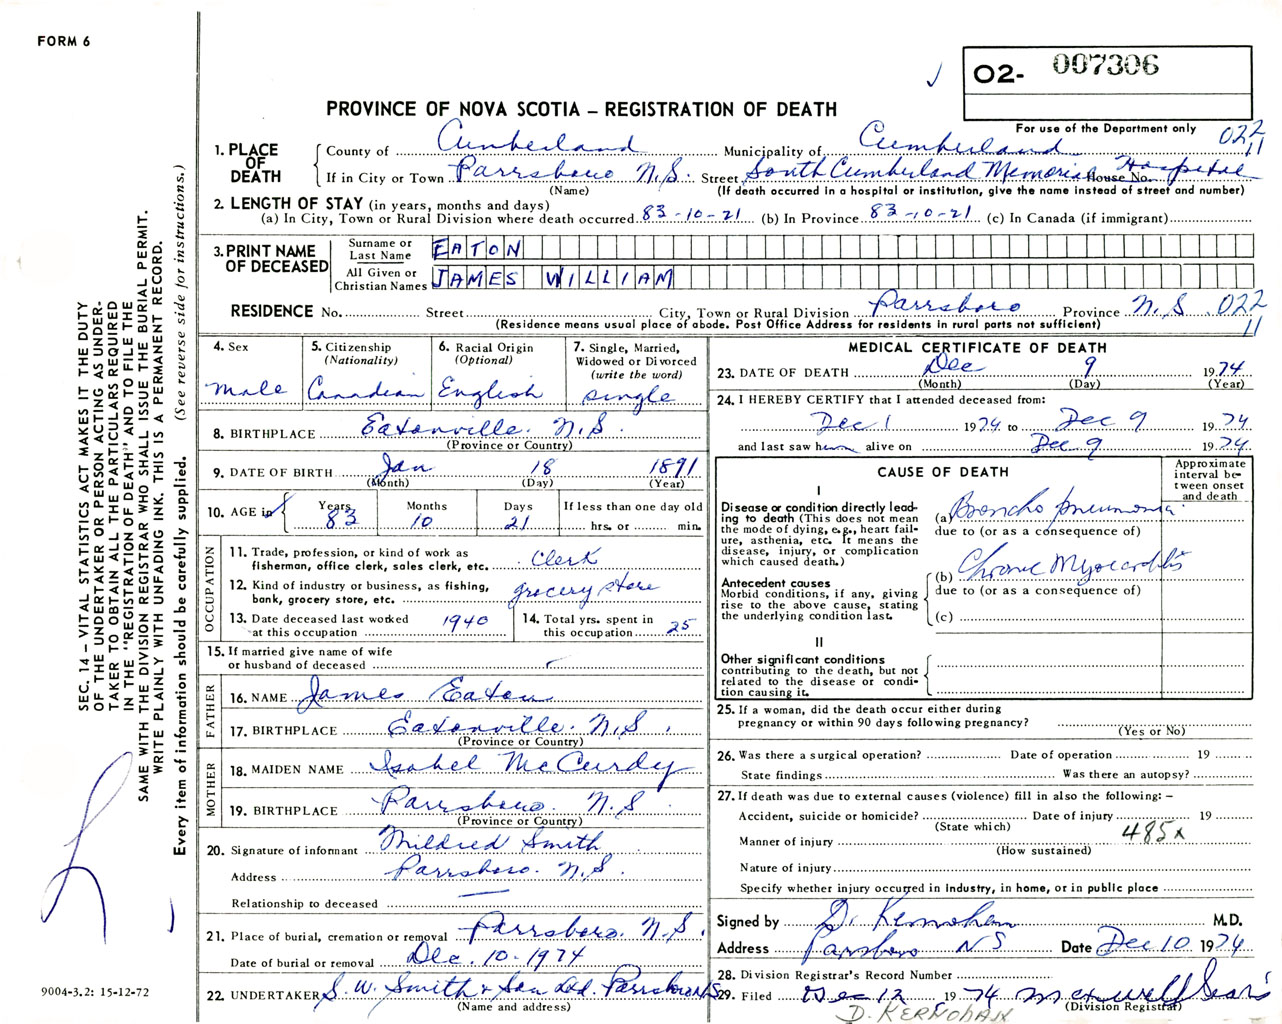 FORM 6
O2- 007306
PROVINCE OF NOVA SCOTIA – REGISTRATION OF DEATH
For use of the Department only 022
11
1. PLACE OF DEATH
County of Cumberland Municipality of Cumberland
If in City or Town Parrsboro N.S. Street South Cumberland Memorial House No. Hospital
(Name) (If death occurred in a hospital or institution, give the name instead of street and number)
2. LENGTH OF STAY (in years, months and days)
(a) In City, Town or Rural Division where death occurred 83-10-21 (b) In Province 83-10-21 (c) In Canada (if immigrant)
3. PRINT NAME OF DECEASED
Surname or Last Name EATON
All Given or Christian Names JAMES WILLIAM
RESIDENCE No. Street City, Town or Rural Division Parrsboro Province N.S 022
(Residence means usual place of abode. Post Office Address for residents in rural parts not sufficient) 11
4. Sex
male
5. Citizenship
(Nationality)
Canadian
6. Racial Origin
(Optional)
English
7. Single, Married,
Widowed or Divorced
(write the word)
single
8. BIRTHPLACE Eatonville. N.S.
(Province or Country)
9. DATE OF BIRTH Jan 18 1891
(Month) (Day) (Year)
10. AGE in
Years Months Days If less than one day old
83 10 21 hrs. or min.
OCCUPATION
11. Trade, profession, or kind of work as
fisherman, office clerk, sales clerk, etc. Clerk
12. Kind of industry or business, as fishing,
bank, grocery store, etc. grocery store
13. Date deceased last worked
at this occupation 1940
14. Total yrs. spent in
this occupation 25
15. If married give name of wife
or husband of deceased
FATHER
16. NAME James Eaton
17. BIRTHPLACE Eatonville. N.S.
(Province or Country)
MOTHER
18. MAIDEN NAME Isabel McCurdy
19. BIRTHPLACE Parrsboro. N.S
(Province or Country)
20. Signature of informant Mildred Smith
Address Parrsboro. N.S.
Relationship to deceased
21. Place of burial, cremation or removal Parrsboro. N.S.
Date of burial or removal Dec. 10. 1974
22. UNDERTAKER S. W. Smith & Son Ltd. Parrsboro NS
(Name and address)
MEDICAL CERTIFICATE OF DEATH
23. DATE OF DEATH Dec 9 1974
(Month) (Day) (Year)
24. I HEREBY CERTIFY that I attended deceased from:
Dec 1 1974 to Dec 9 1974
and last saw him alive on Dec 9 1974
CAUSE OF DEATH
Approximate interval between onset and death
I
Disease or condition directly leading to death (This does not mean the mode of dying, e.g., heart failure, asthenia, etc. It means the disease, injury, or complication which caused death.)
(a) Broncho pneumonia
due to (or as a consequence of)
Antecedent causes
Morbid conditions, if any, giving rise to the above cause, stating the underlying condition last.
(b) Chronic Myocarditis
due to (or as a consequence of)
(c)
II
Other significant conditions
contributing to the death, but not related to the disease or condition causing it.
25. If a woman, did the death occur either during
pregnancy or within 90 days following pregnancy?
(Yes or No)
26. Was there a surgical operation? Date of operation 19
State findings Was there an autopsy?
27. If death was due to external causes (violence) fill in also the following: –
Accident, suicide or homicide? Date of injury 19
(State which)
Manner of injury 485x
(How sustained)
Nature of injury
Specify whether injury occurred in industry, in home, or in public place
Signed by D. Kernohan M.D.
Address Parrsboro NS Date Dec 10 1974
28. Division Registrar's Record Number
29. Filed Dec 12 1974 Maxwell Sears
(Division Registrar)
D. KERNOHAN
SEC. 14 – VITAL STATISTICS ACT MAKES IT THE DUTY
OF THE UNDERTAKER OR PERSON ACTING AS UNDER-
TAKER TO OBTAIN ALL THE PARTICULARS REQUIRED
IN THE "REGISTRATION OF DEATH" AND TO FILE THE
SAME WITH THE DIVISION REGISTRAR WHO SHALL ISSUE THE BURIAL PERMIT.
WRITE PLAINLY WITH UNFADING INK. THIS IS A PERMANENT RECORD.
Every item of information should be carefully supplied. (See reverse side for instructions.)
9004-3.2: 15-12-72